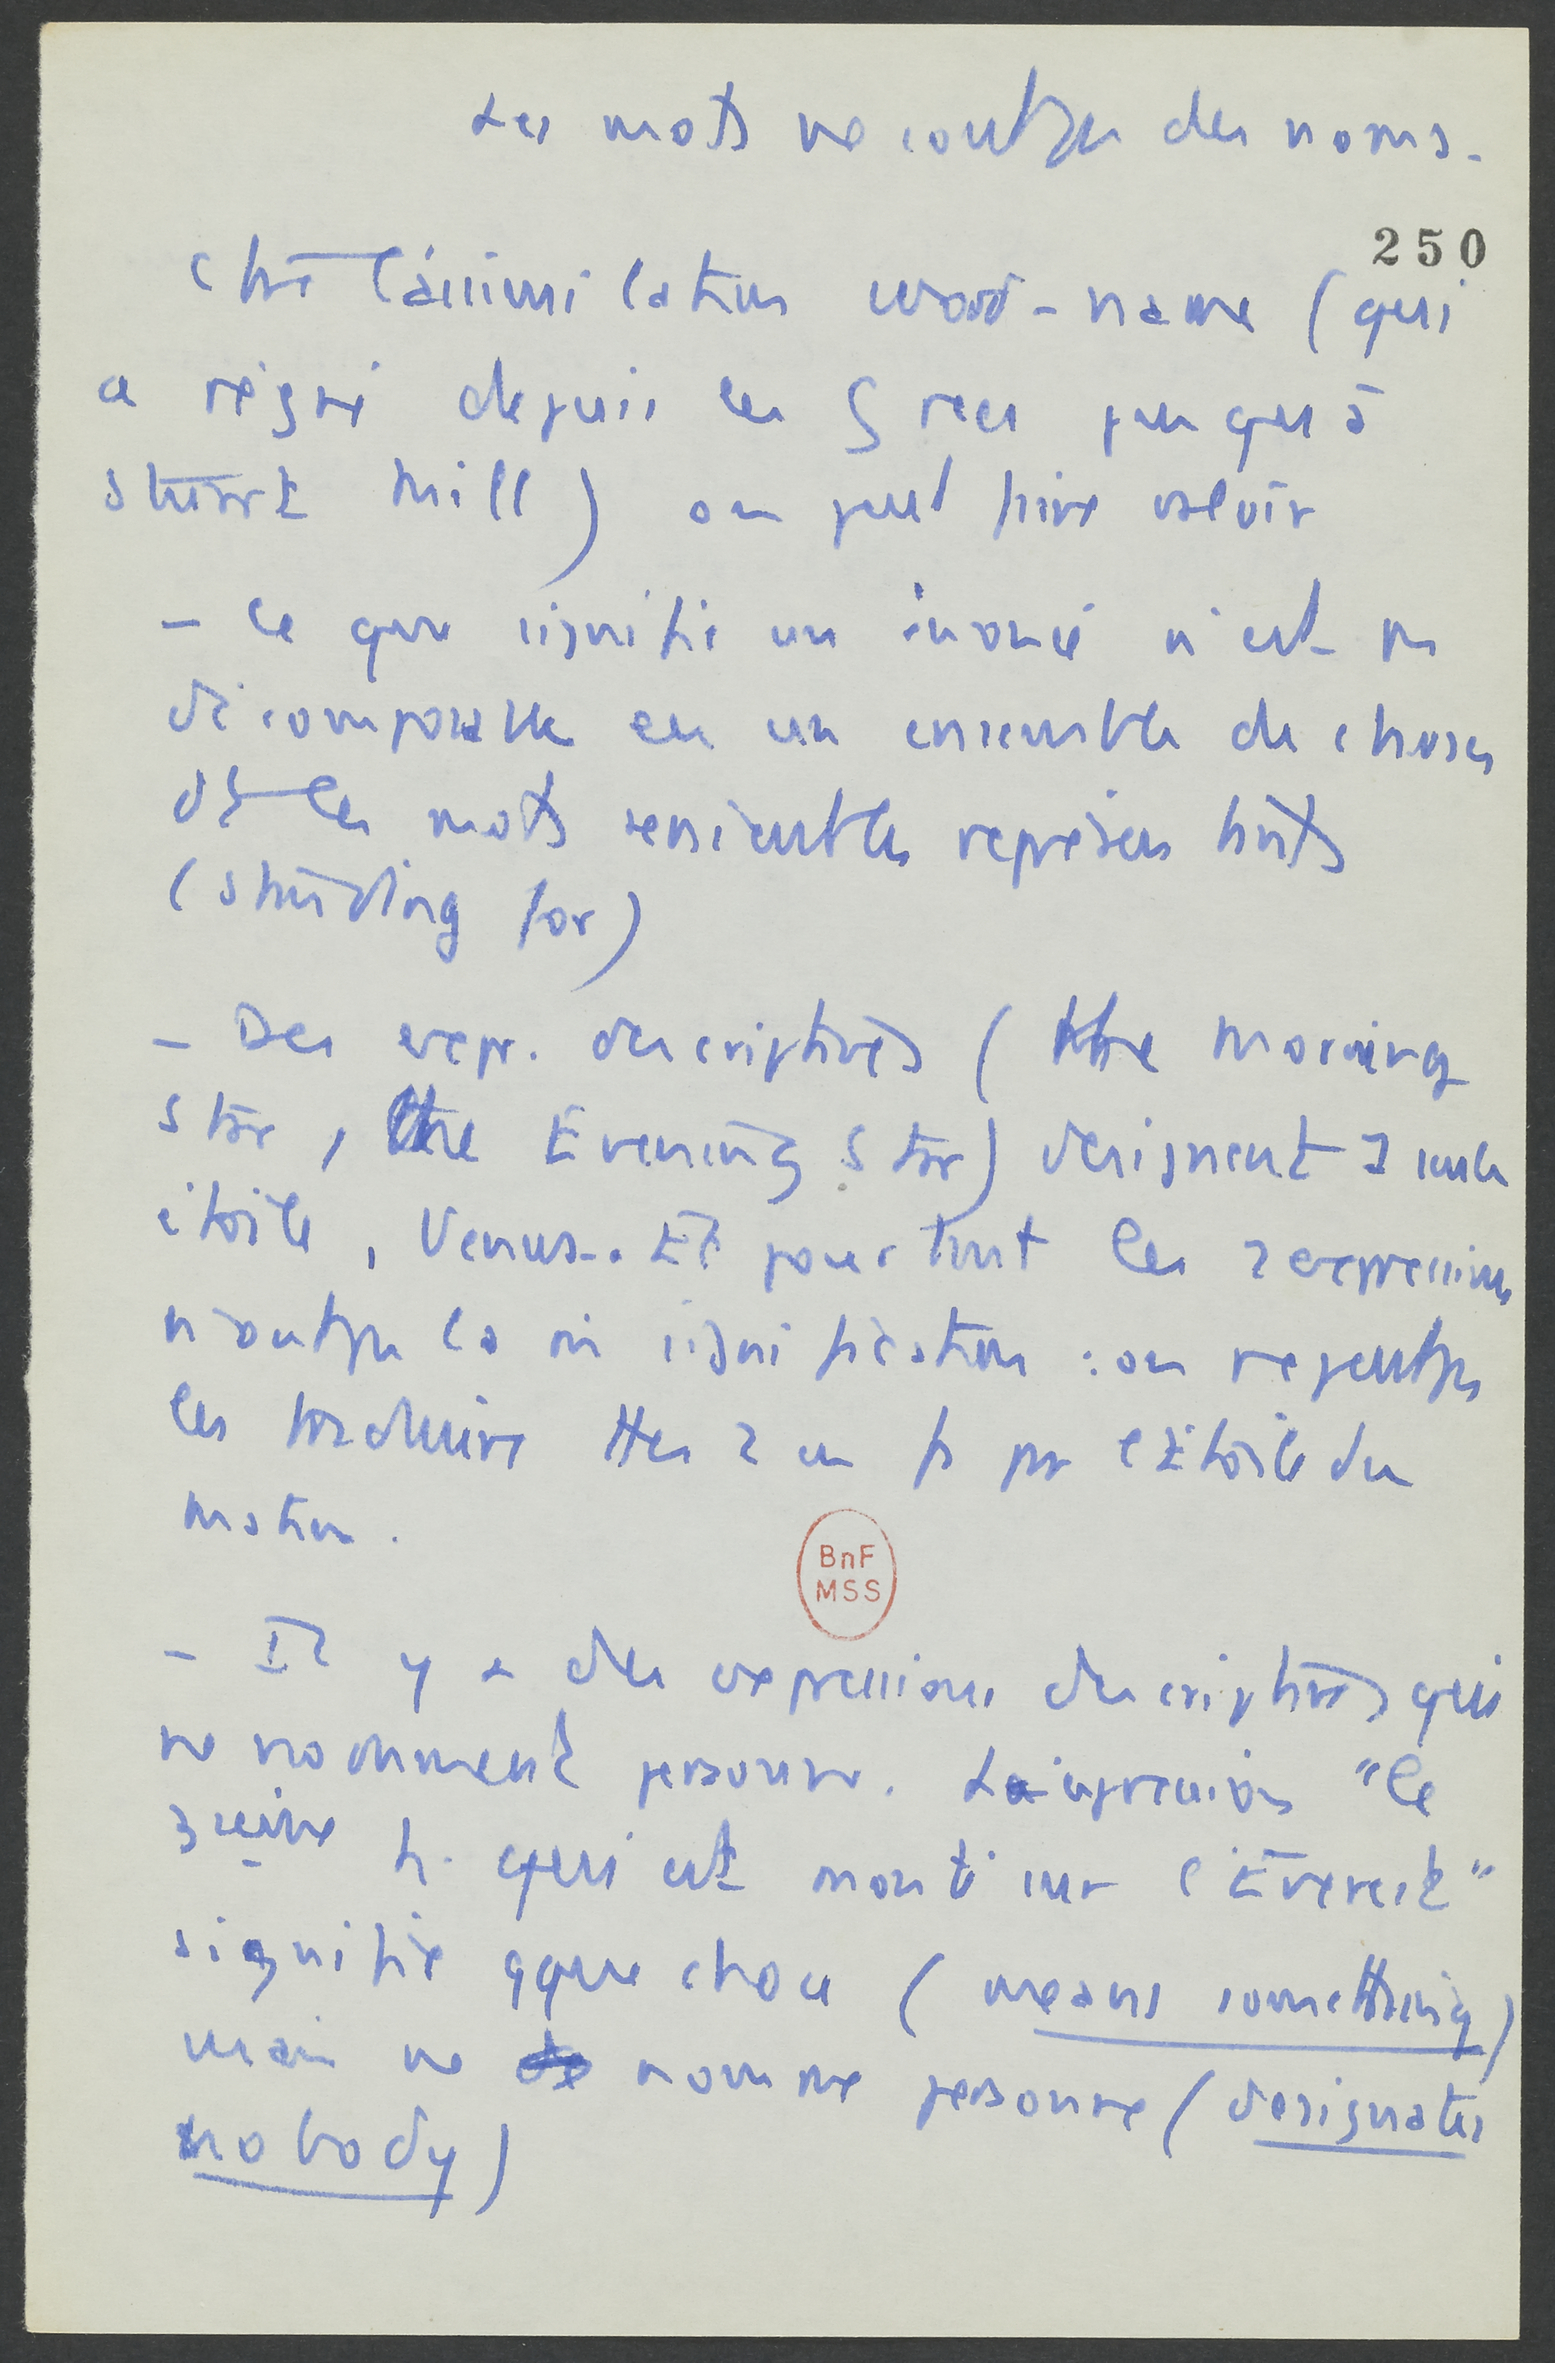 Les mots ne sont pas des noms.
250
Contre l'assimilation word-name (qui
a régné depuis les Grecs jusqu'à
Stuart Mill) on peut faire valoir
- Ce que signifie un énoncé n'est pas
décomposable en un ensemble de choses
dt les mots seraient les représentants
(standing for)
- Des expr. descriptives (the Morning
Star, the Evening Star) désignent 1 seule
étoile, Venus. Et pourtant les 2 expressions
n'ont pas la m signification : on ne peut pas
les traduire ttes 2 en fs par l'Etoile du
matin.
BnF
MSS
- Il y a des expressions descriptives qui
ne nomment personne. L'expression "le
3ième h. qui est monté sur l'Everest"
signifie qque chose (means something)
mais ne nomme personne (designates
nobody)